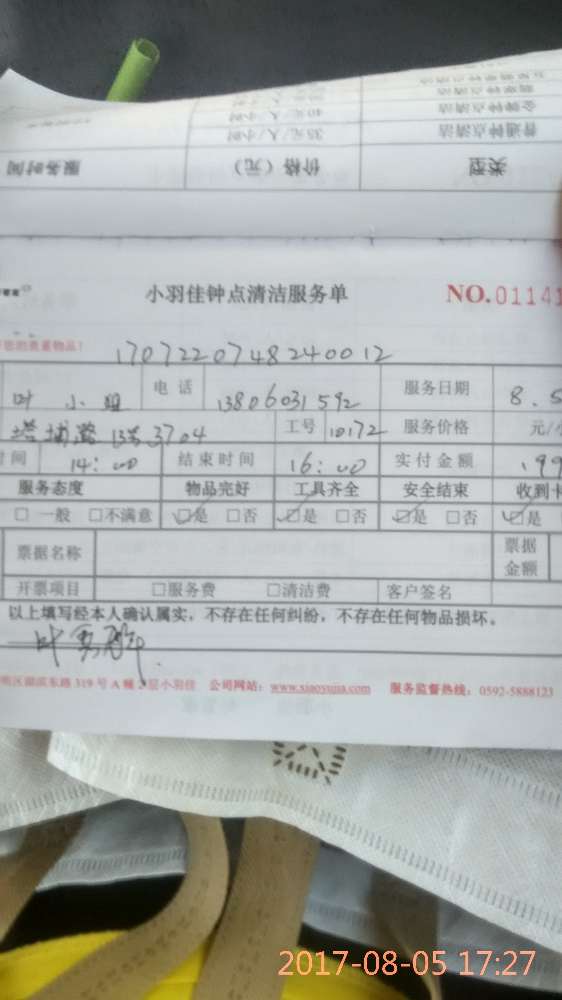 普通钟点清洁 35元/人/小时
类型 价格（元） 服务时间
小羽佳钟点清洁服务单 NO.01141
您的贵重物品！
1707220748240012
叶小姐 电话 13806031592 服务日期 8.5
塔埔路13号3704 工号 10172 服务价格 元/
时间 14：00 结束时间 16：00 实付金额 199
服务态度 物品完好 工具齐全 安全结束 收到卡
□一般 □不满意 ☑是 □否 ☑是 □否 ☑是 □否 ☑是
票据名称 票据金额
开票项目 □服务费 □清洁费 客户签名
以上填写经本人确认属实，不存在任何纠纷，不存在任何物品损坏。
明区湖滨东路319号A幢2层小羽佳 公司网站：www.xiaoyujia.com 服务监督热线：0592-5888123
2017-08-05 17:27